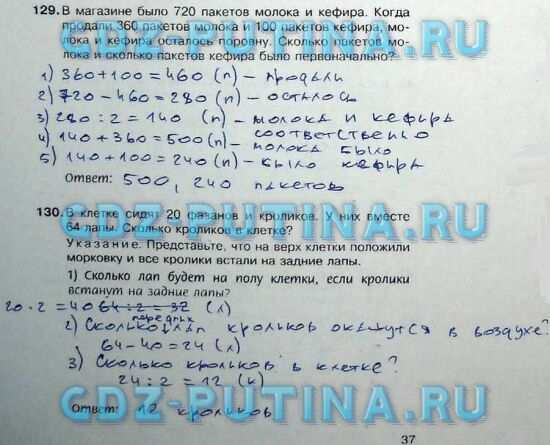 129. В магазине было 720 пакетов молока и кефира. Когда
продали 360 пакетов молока и 100 пакетов кефира, мо-
лока и кефира осталось поровну. Сколько пакетов мо-
лока и сколько пакетов кефира было первоначально?
1) 360+100=460 (п) – продали
2) 720-460=280 (п) – осталось
3) 280:2=140 (п) – молока и кефира
соответственно
4) 140+360=500 (п) – молока было
5) 140+100=240 (п) – было кефира
Ответ: 500, 240 пакетов
130. В клетке сидят 20 фазанов и кроликов. У них вместе
64 лапы. Сколько кроликов в клетке?
Указание. Представьте, что на верх клетки положили
морковку и все кролики встали на задние лапы.
1) Сколько лап будет на полу клетки, если кролики
встанут на задние лапы?
20·2=40 64:2=32 (л)
передних
2) Сколько лап крольков окажутся в воздухе?
64-40=24 (л)
3) Сколько крольков в клетке?
24:2=12 (к)
Ответ: 12 кроликов
37
GDZ-PUTINA.RU
GDZ-PUTINA.RU
GDZ-PUTINA.RU
GDZ-PUTINA.RU
GDZ-PUTINA.RU